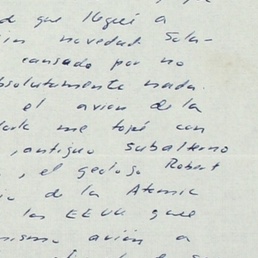 d que llegué a
sin novedad Sola-
cansado por no
absolutamente nada.
el avion de la
tarde me topé con
, antiguo subalterno
, el geologo Robert
de la Atomic
los EEUU que
mismo avión a